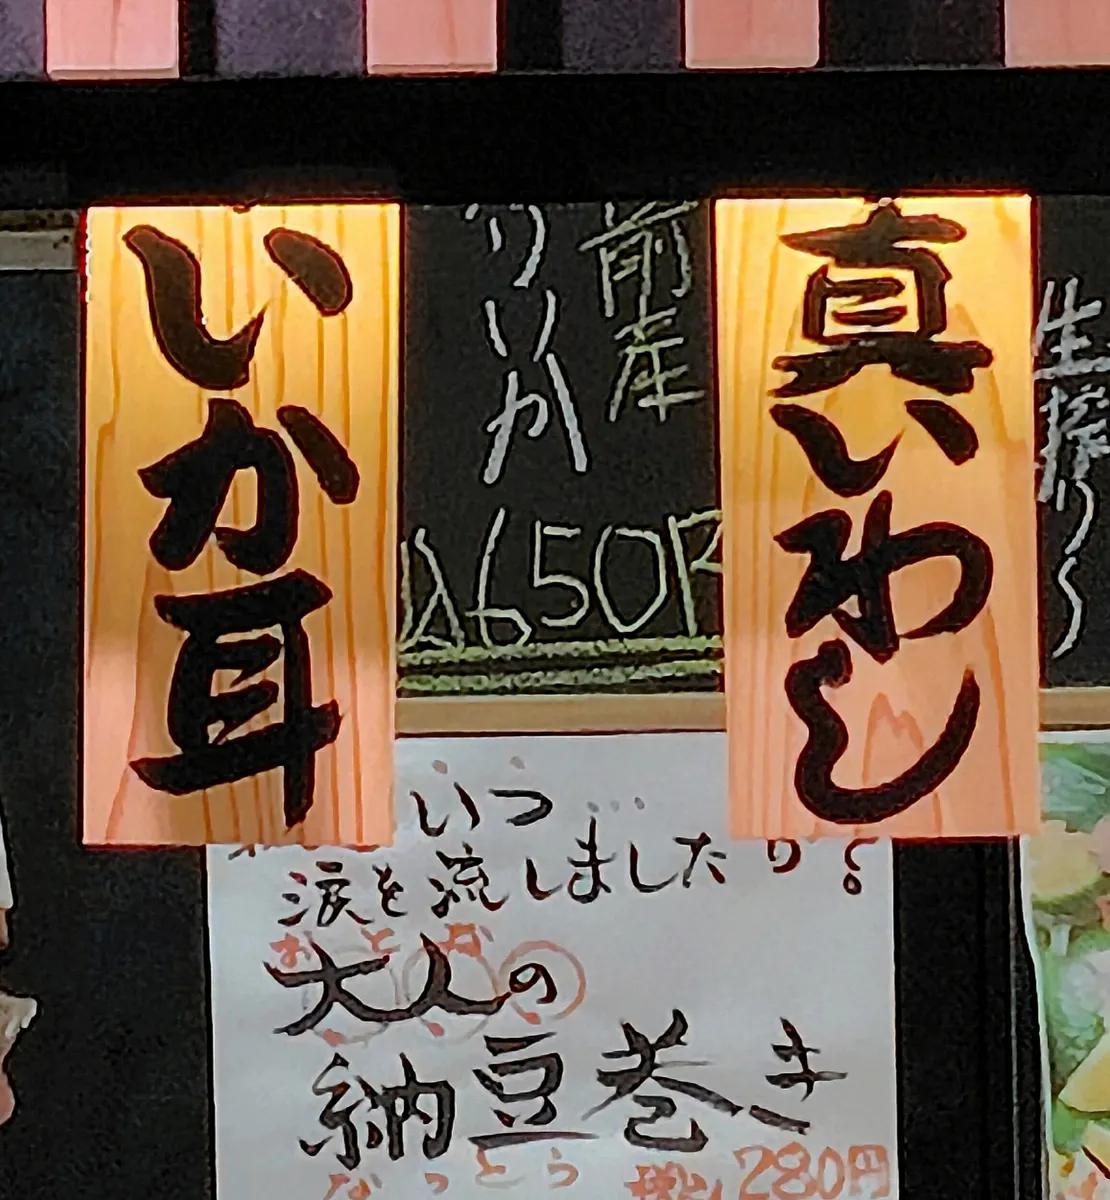 真いわし
いか耳
前産
りいか
650円
生搾り〜
いつ
涙を流しました
大人の
おとな
納豆巻き
なっとう
280円